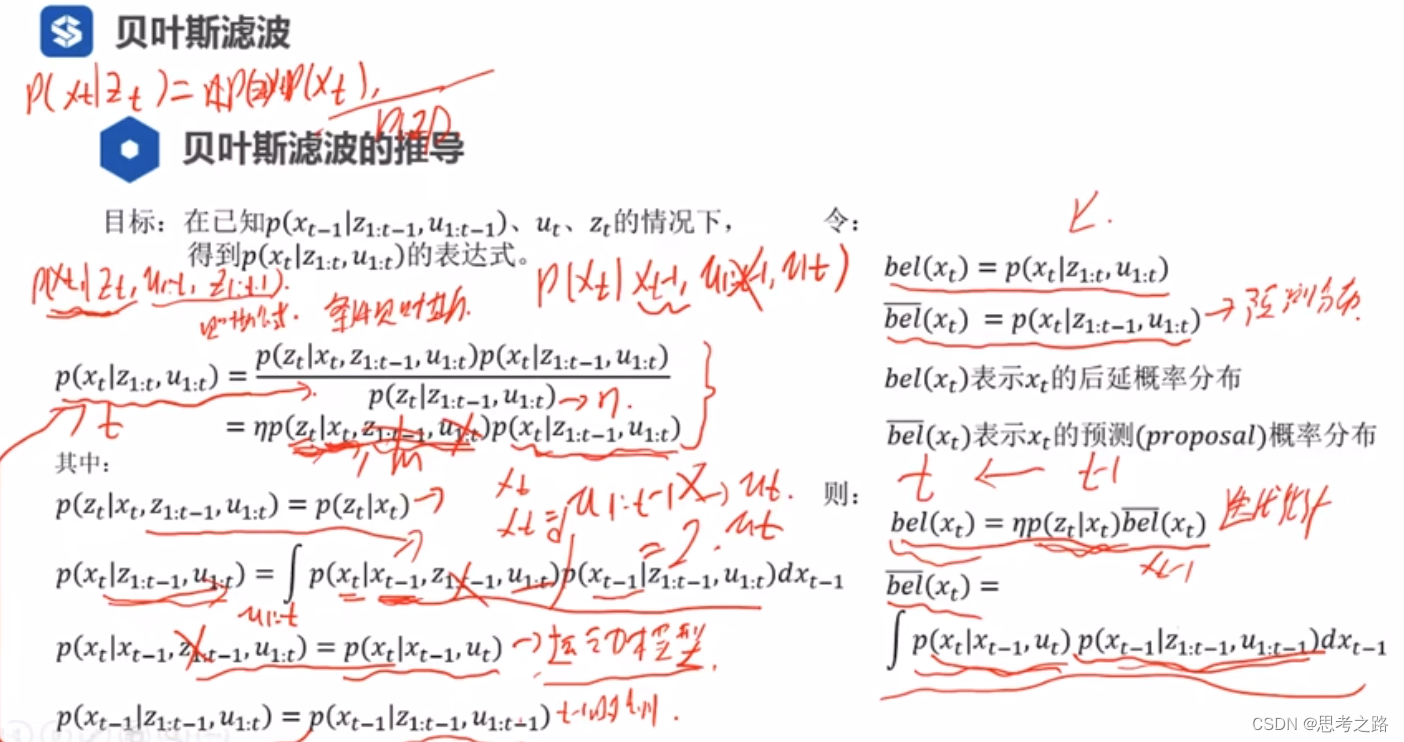 贝叶斯滤波
贝叶斯滤波的推导
目标：在已知p(x_{t−1}|z_{1:t−1},u_{1:t−1})、u_t、z_t的情况下，
得到p(x_t|z_{1:t},u_{1:t})的表达式。
p(x_t|x_{t-1}, u_{1:t-1}, u_t)
条件贝叶斯
p(x_t|z_{1:t},u_{1:t}) = p(z_t|x_t,z_{1:t−1},u_{1:t})p(x_t|z_{1:t−1},u_{1:t}) / p(z_t|z_{1:t−1},u_{1:t}) → η.
t
= ηp(z_t|x_t,z_{1:t−1},u_{1:t})p(x_t|z_{1:t−1},u_{1:t})
m
其中：
p(z_t|x_t,z_{1:t−1},u_{1:t}) = p(z_t|x_t) →
p(x_t|z_{1:t−1},u_{1:t}) = ∫ p(x_t|x_{t−1},z_{1:t−1},u_{1:t})p(x_{t−1}|z_{1:t−1},u_{1:t})dx_{t−1}
u_{1:t}
p(x_t|x_{t−1},z_{1:t−1},u_{1:t}) = p(x_t|x_{t−1},u_t) → 运动模型
p(x_{t−1}|z_{1:t−1},u_{1:t}) = p(x_{t−1}|z_{1:t−1},u_{1:t−1}) t-1时刻.
令：
bel(x_t) = p(x_t|z_{1:t},u_{1:t})
\overline{bel}(x_t) = p(x_t|z_{1:t−1},u_{1:t}) → 预测分布.
bel(x_t)表示x_t的后延概率分布
\overline{bel}(x_t)表示x_t的预测(proposal)概率分布
t ← t-1
则：
bel(x_t) = ηp(z_t|x_t)\overline{bel}(x_t)
x_{t-1}
\overline{bel}(x_t) =
∫ p(x_t|x_{t−1},u_t) p(x_{t−1}|z_{1:t−1},u_{1:t−1})dx_{t−1}
CSDN @思考之路